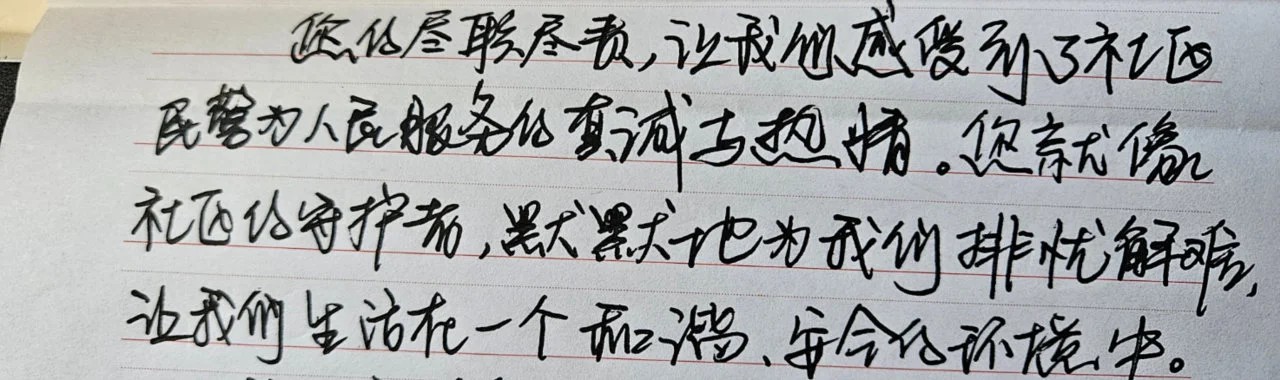 您的尽职尽责,让我们感受到了社区
民警为人民服务的真诚与热情。您就像
社区的守护者,默默地为我们排忧解难,
让我们生活在一个和谐、安全的环境中。